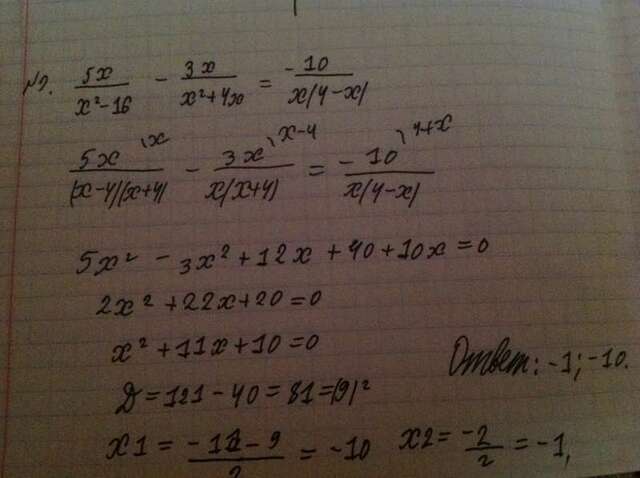 №2. 5x/(x²-16) - 3x/(x²+4x) = -10/(x(4-x))
5x\x/((x-4)(x+4)) - 3x\x-4/(x(x+4)) = -10\4+x/(x(4-x))
5x² - 3x² + 12x + 40 + 10x = 0
2x² + 22x + 20 = 0
x² + 11x + 10 = 0
Ответ: -1; -10.
D = 121 - 40 = 81 = (9)²
x1 = (-11-9)/2 = -10 x2 = -2/2 = -1,